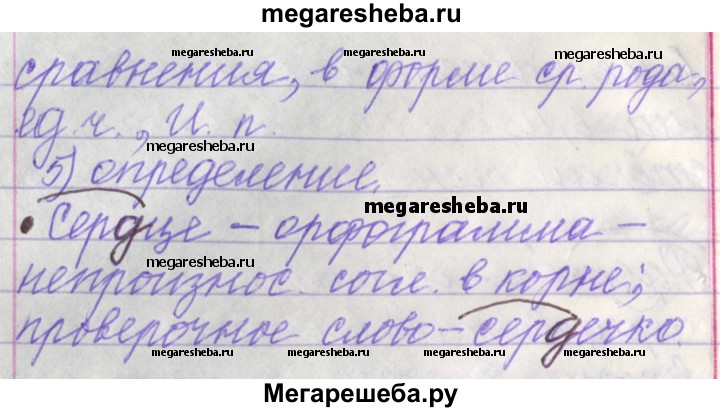 megaresheba.ru
megaresheba.ru megaresheba.ru megaresheba.ru
сравнения, в форме ср. рода,
ед.ч., И. п.
megaresheba.ru
5) определение.
megaresheba.ru
• Сердце – орфограмма –
megaresheba.ru megaresheba.ru
непроизнос. согл. в корне;
проверочное слово – сердечко.
megaresheba.ru megaresheba.ru megaresheba.ru
Мегарешеба.ру